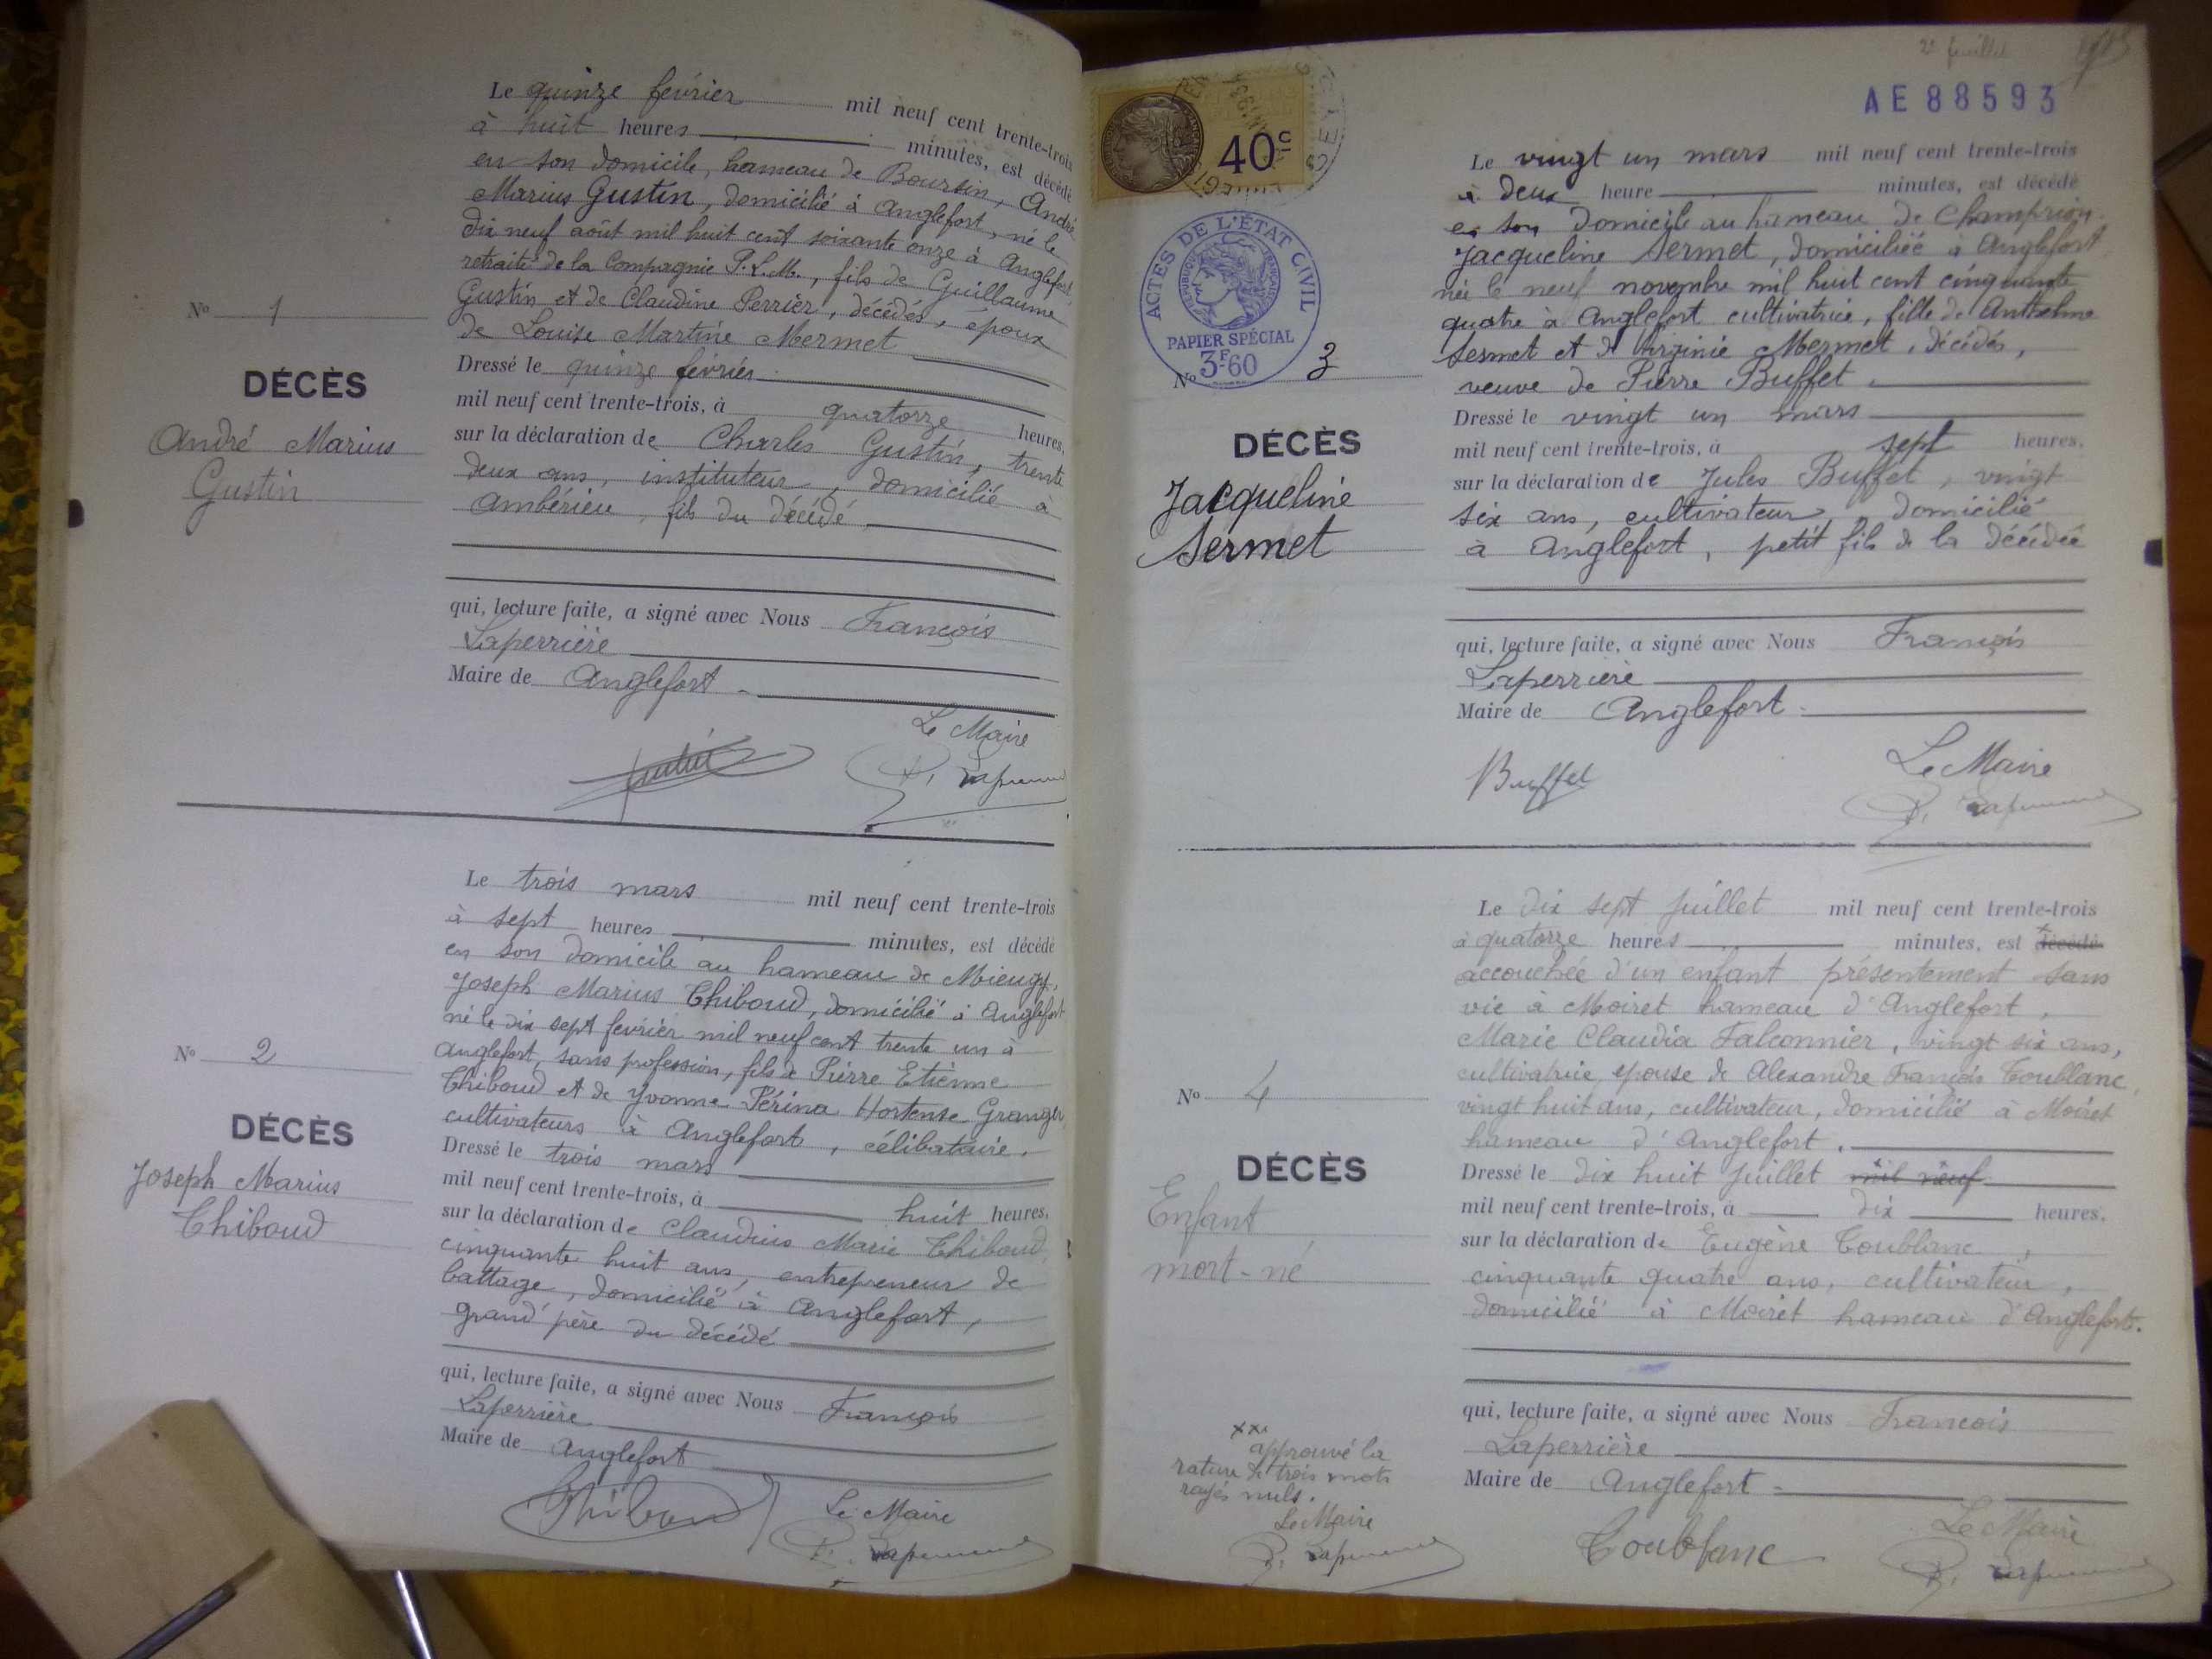 Le quinze février mil neuf cent trente-trois
à huit heures minutes, est décédé
en son domicile, hameau de Boursin, André
Marius Gustin, domicilié à Anglefort, né le
dix neuf août mil huit cent soixante onze à Anglefort,
retraité de la Compagnie P.L.M., fils de Guillaume
Gustin et de Claudine Perrier, décédés, époux
de Louise Martine Mermet
No 1
DÉCÈS
André Marius
Gustin
Dressé le quinze février
mil neuf cent trente-trois, à quatorze heures,
sur la déclaration de Charles Gustin, trente
deux ans, instituteur, domicilié à
Ambérieu, fils du décédé
qui, lecture faite, a signé avec Nous François
Laperrière
Maire de Anglefort
Le Maire
Le trois mars mil neuf cent trente-trois
à sept heures minutes, est décédé
en son domicile au hameau de Mieugy,
Joseph Marius Thiboud, domicilié à Anglefort
né le dix sept février mil neuf cent trente un à
Anglefort, sans profession, fils de Pierre Etienne
Thiboud et de Yvonne Périna Hortense Granger,
cultivateurs à Anglefort, célibataire.
No 2
DÉCÈS
Joseph Marius
Thiboud
Dressé le trois mars
mil neuf cent trente-trois, à huit heures,
sur la déclaration de Claudius Marie Thiboud,
cinquante huit ans, entrepreneur de
battage, domicilié à Anglefort,
grand père du décédé
qui, lecture faite, a signé avec Nous François
Laperrière
Maire de Anglefort
Thiboud
Le Maire
2e feuillet
AE88593
40c
ACTES DE L'ÉTAT CIVIL
RÉPUBLIQUE FRANÇAISE
PAPIER SPÉCIAL
3F60
Le vingt un mars mil neuf cent trente-trois
à deux heure minutes, est décédé
en son domicile au hameau de Champrion
Jacqueline Sermet, domiciliée à Anglefort
née le neuf novembre mil huit cent cinquante
quatre à Anglefort cultivatrice, fille de Anthelme
Sermet et de Virginie Mermet, décédés,
veuve de Pierre Buffet.
No 3
DÉCÈS
Jacqueline
Sermet
Dressé le vingt un mars
mil neuf cent trente-trois, à sept heures,
sur la déclaration de Jules Buffet, vingt
six ans, cultivateur, domicilié
à Anglefort, petit fils de la décédée
qui, lecture faite, a signé avec Nous François
Laperrière
Maire de Anglefort
Buffet
Le Maire
Le dix sept juillet mil neuf cent trente-trois
à quatorze heures minutes, est décédé
accouchée d'un enfant présentement sans
vie à Moiret hameau d'Anglefort,
Marie Claudia Falconnier, vingt six ans,
cultivatrice, épouse de Alexandre François Toublanc,
vingt huit ans, cultivateur, domicilié à Moiret
hameau d'Anglefort.
No 4
DÉCÈS
Enfant
mort-né
Dressé le dix huit juillet mil neuf
mil neuf cent trente-trois, à dix heures,
sur la déclaration de Eugène Toublanc,
cinquante quatre ans, cultivateur,
domicilié à Moiret hameau d'Anglefort.
qui, lecture faite, a signé avec Nous François
Laperrière
Maire de Anglefort
xxx
approuvé la
rature de trois mots
rayés nuls.
Le Maire
Toublanc
Le Maire